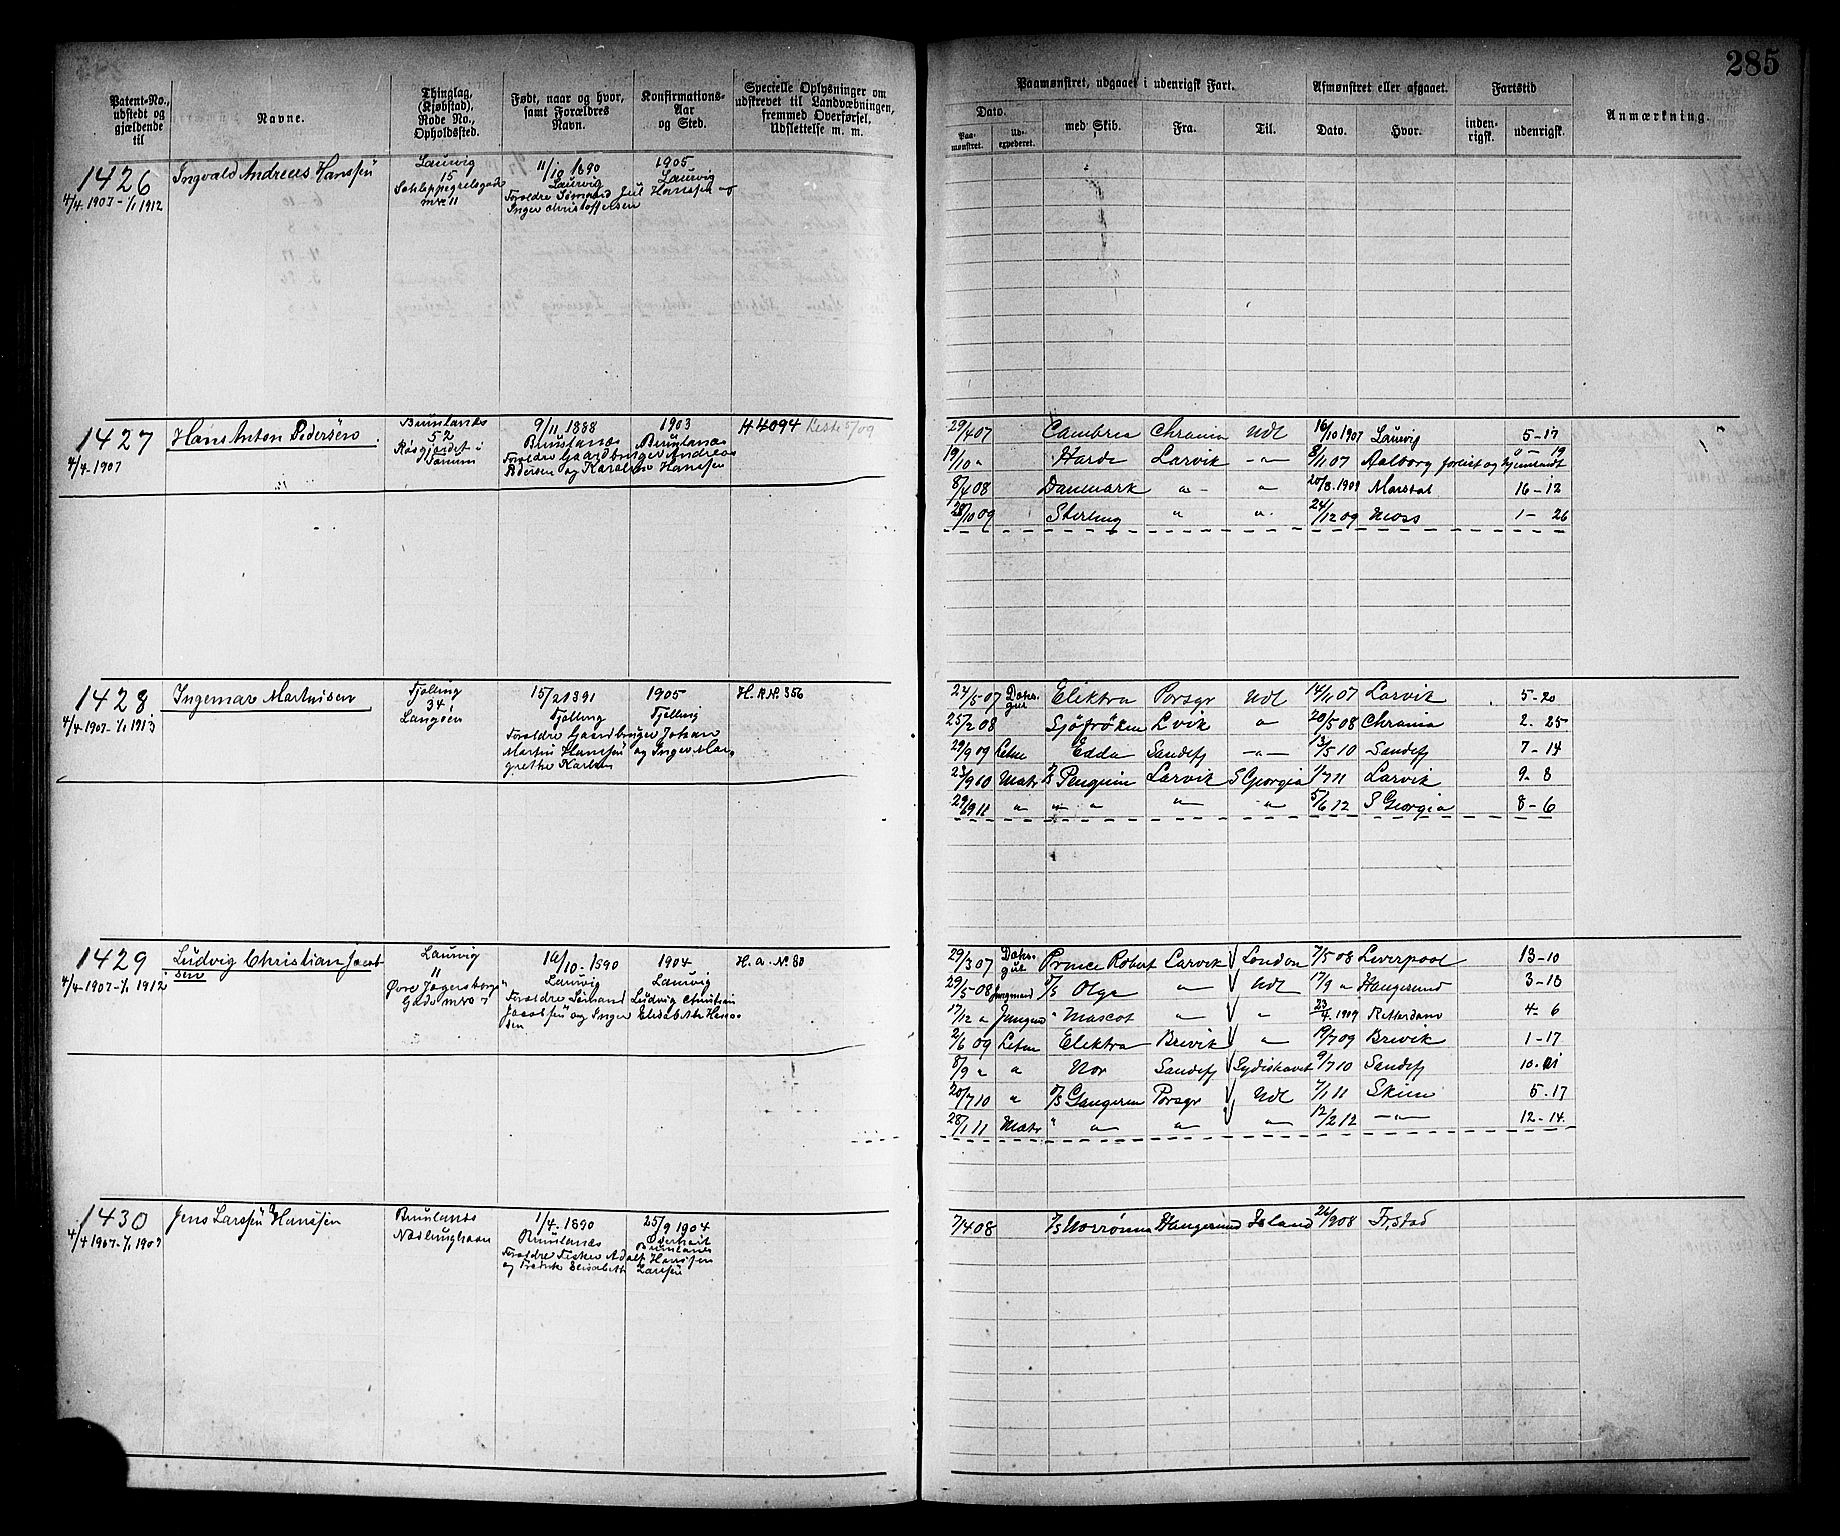 285
Patent-No., udstedt og gjældende til
Navne.
Thinglag, (Kjøbstad), Rode No., Opholdssted.
Født, naar og hvor, samt Forældres Navn.
Konfirmations-Aar og Sted.
Specielle Oplysninger om udskrevet til Landvæbningen, fremmed Overførsel, Udslettelse m. m.
Paamønstret, udgaaet i udenrigsk Fart.
Dato.
Paa-mønstret.
Ud-expederet.
med Skib.
Fra.
Til.
Afmønstret eller afgaaet.
Dato.
Hvor.
Fartstid
inden-rigsk.
udenrigsk.
Anmærkning.
1426
4/4 1907 - 1/1 1912
Ingvald Andreas Hanssen
Laurvig
15
Schleppegrelsgade
nro 11
11/10 1890
Laurvig
Foreldre Gjømand Jul Hanssen og
Inger Christoffersen
1905
Laurvig
1427
4/4-1907
Hans Anton Pedersen
Brunlanes
52
9/11 1888
Brunlanes
Foreldre Gaardbruger Andreas
Pedersen og Karoline Hanssen
1903
Brunlanes
H 4094
29/4 07 Cambria Chrania Udl 16/10 1907 Laurvig 5-17
19/10 " Hardi Larvik -"- 8/1 07 Aalborg forlist og hjemsendt " - 19
8/4 08 Danmark " " 20/8.1909 Marstal 16-12
28/10 09 Sterling " " 24/12 09 Moss 1- 26
1428
4/4-1907-1/1 1913
Ingemar Martinsen
Tjølling
34
Langøen
15/2 1891
Tjølling
Foreldre Gaardbruger Johan
Martin Hanssen og Inger Mar
grethe Karlsen
1905
Tjølling
H. A No. 356
24/5 07 Daks-gut Elektra Porsgr Udl 14/11 07 Larvik 5-20
25/2 08 Sjøfrøken Lvik " 20/5 08 Chrania 2. 25
29/9 09 Letm Edda Sandefj -"- 13/5 10 Sandefj 7-14
23/9 10 Matr D/S Penguin Larvik S Georgia 1/7 11 Larvik 9-8
29/9 11 " " " " " 5/6 12 S Georgia 8-6
1429
4/4-1907-1/1 1912
Ludvig Christian Jacob
sen
Laurvig
11
Øvre Jegersborg
Gade nro 7
10/10-1890
Laurvig
Foreldre Sømand Ludvig Christian
Jacobsen og Inger Elisabeth Hans
sen
1904
Laurvig
H. a. No 80
29/3 07 Daks-gut Prince Robert Larvik London 7/5 08 Liverpool 13-10
29/5-08 Jungmand D/S Olga " Udl 17/9 " Haugesund 3-18
17/12 " Jungmd " Mascot " " 23/4. 1909 Rotterdam 4-6
2/6 09 Letm Elektra Brevik " 19/7 09 Brevik 1-17
8/9 " " Nor Sandefj Sydishavet 9/7 10 Sandefj 10.
20/7 10 " D/S Gangeren Porsgr Udl 7/1 11 Skien 5.17
28/1 11 Matr " " " " 12/2 12 -"- 12-14.
1430
4/4 1907-1/1 1909
Jens Larssen Hanssen
Brunlanes
Nevlunghavn
1/4-1890
Brunlanes
Foreldre Fisker Adolf Hanssen
og Fredrik Elisabeth Larssen
25/9 1904
Brunlanes
7/4 08 D/S Norrøna Haugesund Island 26/9 08 Frstad